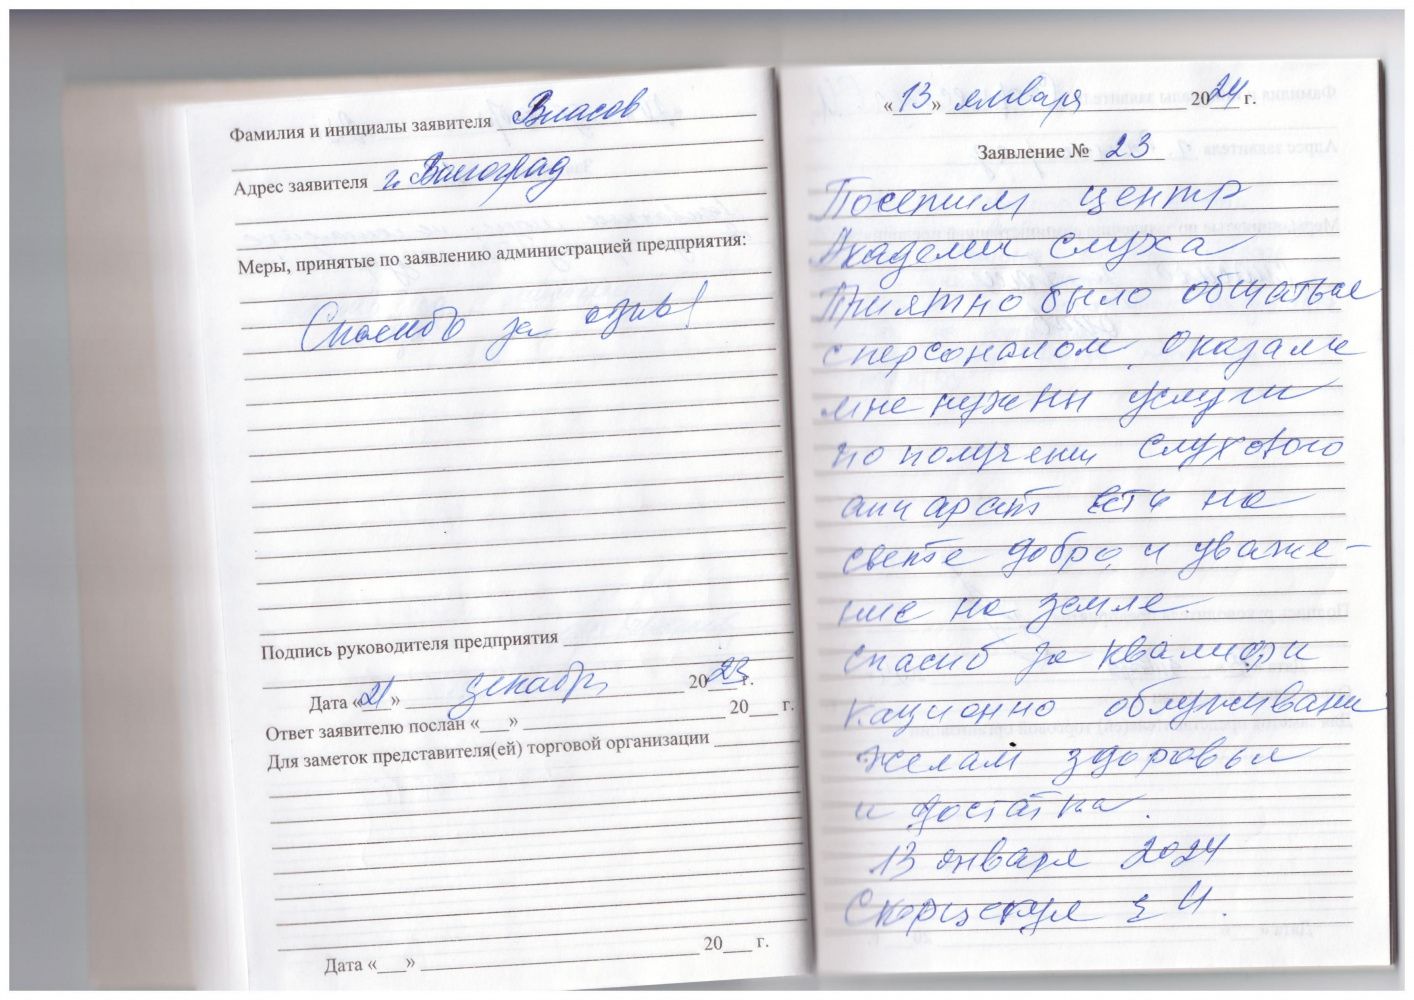 Фамилия и инициалы заявителя Власов
Адрес заявителя г. Волгоград
Меры, принятые по заявлению администрацией предприятия:
Спасибо за отзыв!
Подпись руководителя предприятия
Дата «21» декабрь 2023 г.
Ответ заявителю послан «___» 20___ г.
Для заметок представителя(ей) торговой организации
Дата «___» 20___ г.
«13» января 2024 г.
Заявление № 23
Посетил центр
Академи слуха
Приятно было общаться
с персоналом. Оказали
мне нужны услуги
по получени слухового
аппарат есть на
свете добро и уваже-
ние на земле.
спасиб за квалифи
кационно облуживани
желам здоровья
и достатка.
13 января 2024